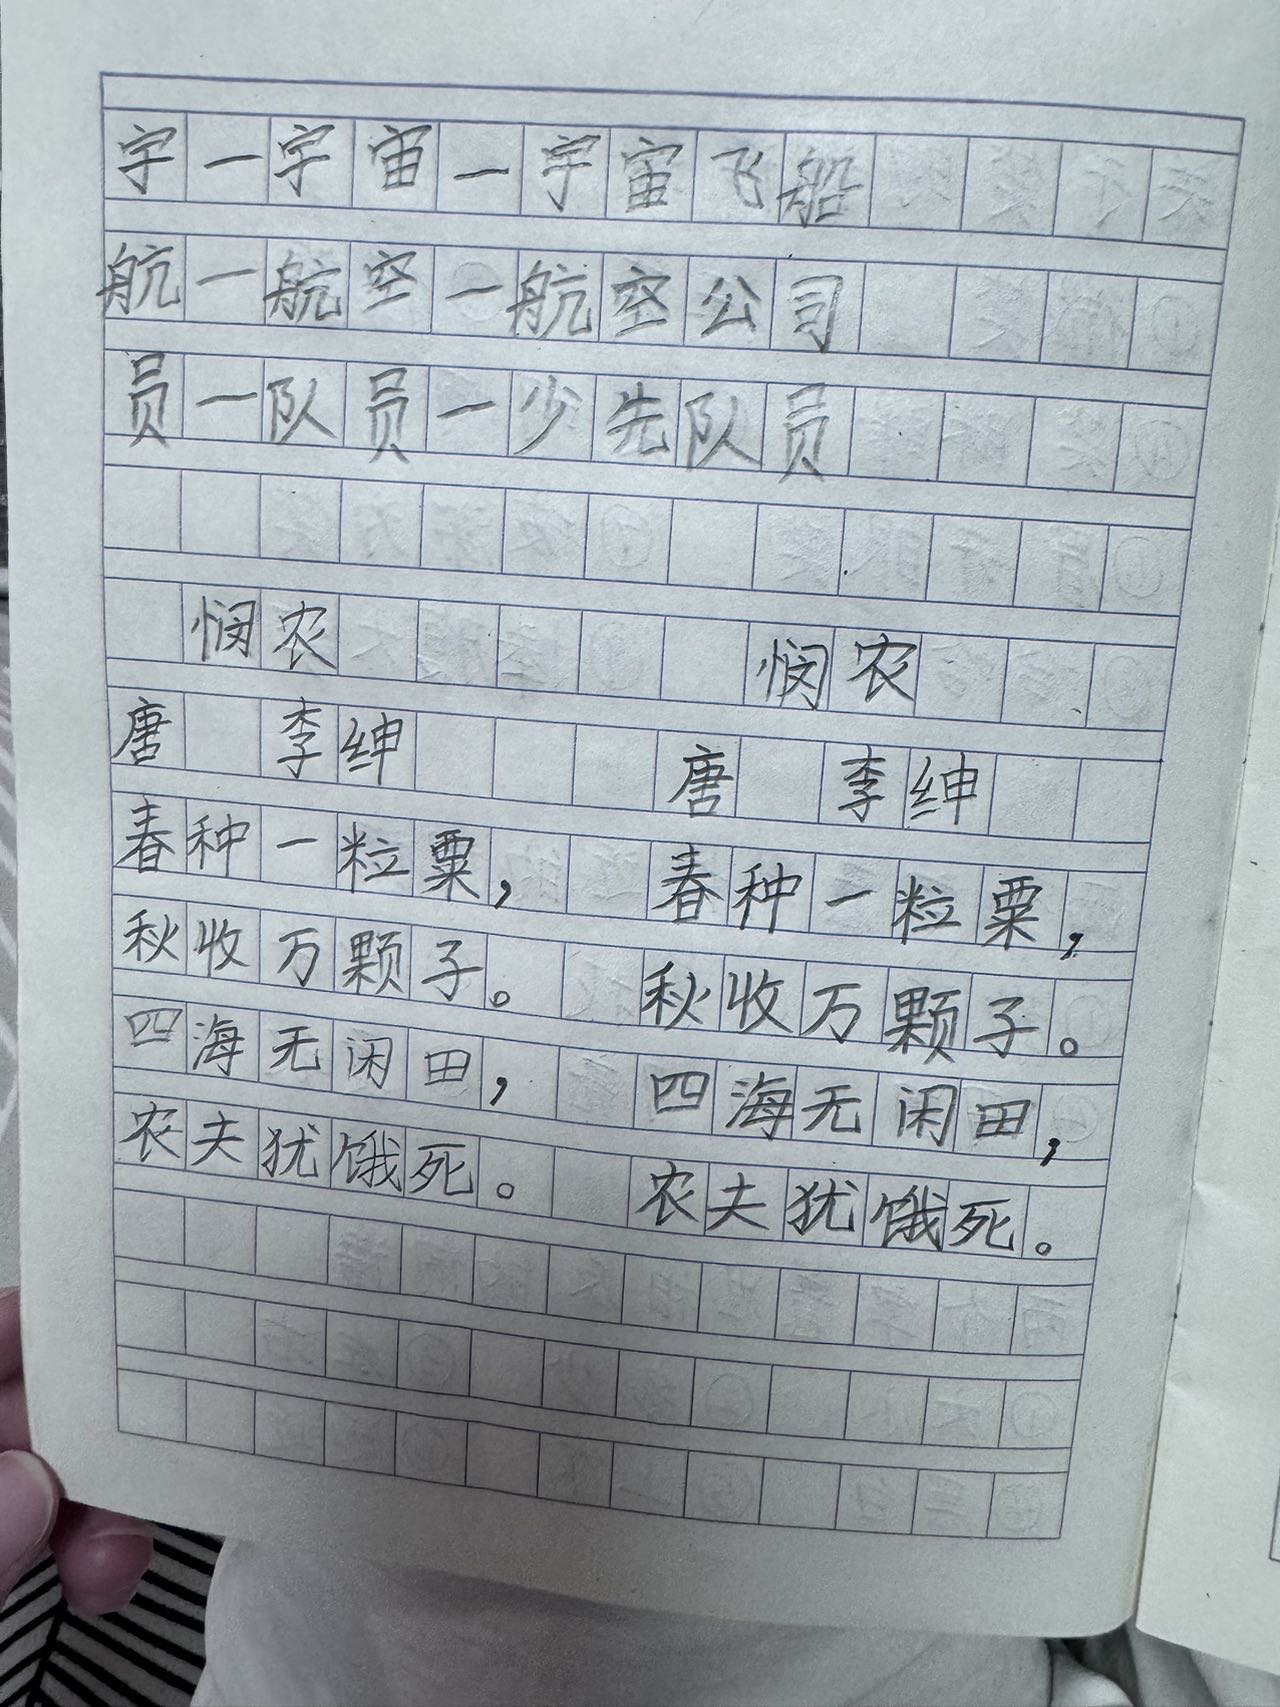 宇一宇宙一宇宙飞船
航一航空一航空公司
员一队员一少先队员
悯农 悯农
唐 李绅 唐 李绅
春种一粒粟， 春种一粒粟，
秋收万颗子。 秋收万颗子。
四海无闲田， 四海无闲田，
农夫犹饿死。 农夫犹饿死。